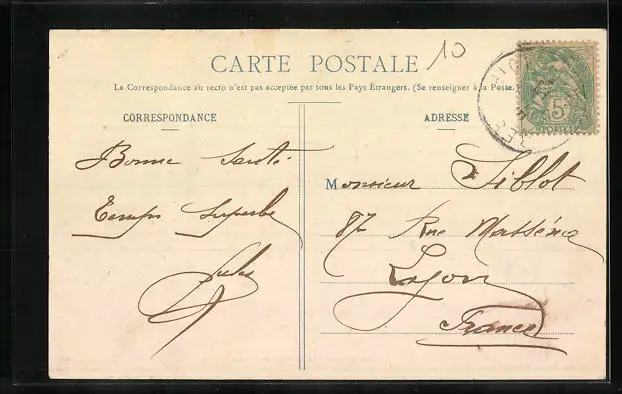 10
CARTE POSTALE
La Correspondance au recto n'est pas acceptée par tous les Pays Étrangers. (Se renseigner à la Poste.
CORRESPONDANCE
ADRESSE
5
POSTES
Bonne Santé
Temps Superbe
Jules
Monsieur Fiblot
87 Rue Masséna
Lyon
France